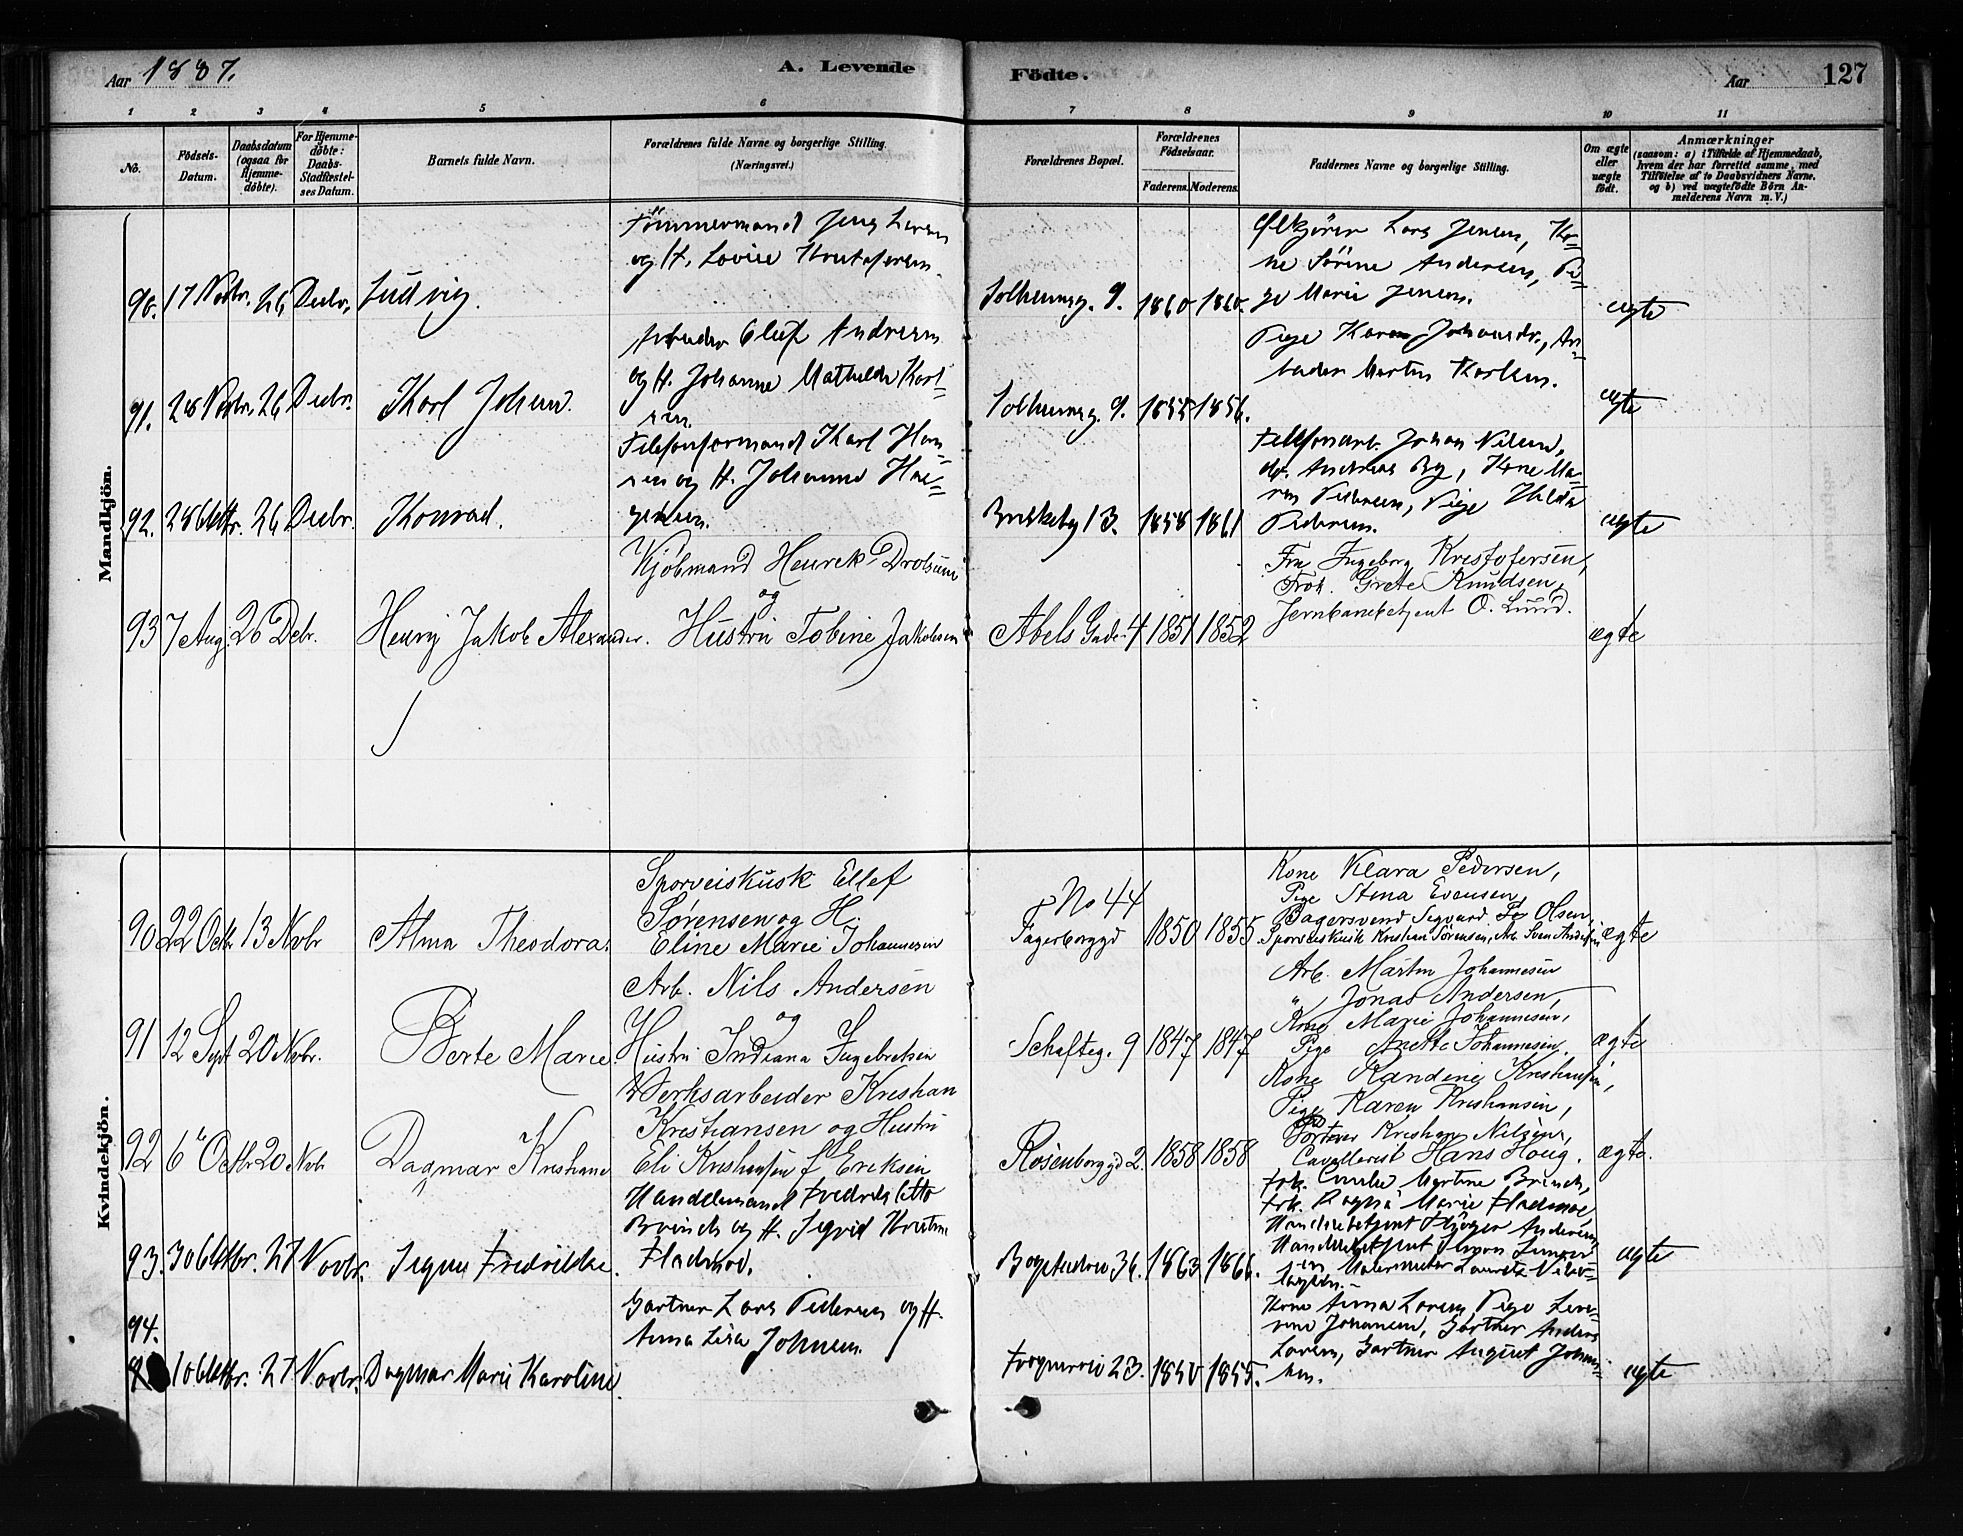 Aar 1887.
A. Levende
Födte.
Aar
127
1 2 3 4 5 6 7 8 9 10 11
No.
Födsels-
Datum.
Daabsdatum
(ogsaa for
Hjemme-
döbte).
For Hjemme-
döbte:
Daabs-
Stadfæstel-
ses Datum.
Barnets fulde Navn.
Forældrenes fulde Navne og borgerlige Stilling.
(Næringsvei.)
Forældrenes Bopæl.
Forældrenes
Födselsaar.
Faderens. Moderens.
Faddernes Navne og borgerlige Stilling.
Om ægte
eller
uægte
födt.
Anmærkninger
(saasom: a) i Tilfælde af Hjemmedaab,
hvem der har forrettet samme, med
Tilföielse af to Daabsvidners Navne,
og b) ved uægtefödte Börn An-
melderens Navn m. V.)
Mandkjön.
90. 17 Novbr. 26 Decbr. Ludvig.
Tömmermand Jens Larsen
og H. Lovise Kristofersen.
Solheimsg. 9. 1860 1860.
Ölkjörer Lars Jensen, Ko-
ne Sörine Andersen, Pi-
ge Marie Jensen.
ægte
91. 28 Novbr. 26 Decbr. Karl Johan.
Arbeider Oluf Andresen
og H. Johanne Mathilde Karl-
sen.
Solheimsg. 9. 1856.
Pige Karen Johansdr., Ar-
beider Martin Karlsen.
ægte
92. 28 Oktbr. 26 Decbr. Konrad.
Telefonformand Karl Han-
sen og H. Johanne Haa-
gensen.
Briskeby 13. 1858 1861
Telefonarb. Johan Nilsen,
do. Andreas By, Kone Ma-
ren Pedersen, Pige Hilda
Pedersen.
ægte
93 7 Aug. 26 Debr. Henry Jakob Alexander.
Kjöbmand Henrek Drolsum
og
Hustru Tobine Jakobsen
Abels Gade 4 1851 1852
Fru Ingeborg Krestofersen,
Frök. Grete Knudsen,
Jernbanebetjent O. Lund.
ægte
Kvindekjön.
90 22 Octbr 13 Nvbr Alma Theodora.
Sporveiskusk Ellef
Sørensen og H.
Eline Marie Johannesen
No 44
Fagerborggd 1850 1855
Kone Klara Pedersen,
Pige Stina Evensen,
Bagersvend Segvard Olsen,
Sporveiskusk Kreshan Sørensen, Arb. Sven Andersen
ægte
91 12 Sept 20 Nvbr. Berte Marie
Arb. Nils Andersen
og
Hustru Indiana Ingebretsen
Schafteg. 9 1847 1847
Arb. Martin Johannesen
" Jonas Andersen,
Kone Marie Johannesen,
Pige Anette Johannesen.
ægte
92 6 Octbr 20 Nvbr Dagmar Kreshane
Værksarbeider Kreshan
Kreshansen og Hustru
Eli Kreshansen f. Eriksen
Rosenborggd 2. 1858 1858
Kone Randene Kreshansen,
Pige Karen Kreshansen,
Portner Kreshan Nilsen,
Cavallerist Hans Houg.
ægte.
93. 30 Oktbr. 27 Novbr. Signe Fredrikke.
Handelsmand Fredrik Otto
Brinch og H. Sigrid Kristine
Fladmoe.
Bogstadvei 36. 1863 1866.
Frk. Emilie Martine Brinch,
Frk. Ragna Marie Fladmoe,
ægte
94.
10 Oktbr. 27 Novbr. Dagmar Marie Karoline.
Gartner Lars Pedersen og H.
Anna Lisa Johnsen.
Frognervei 23. 1855.
Kone Anna Larsen, Pige
Johansen, Gartner Anders
Larsen, Gartner August Johan-
sen.
ægte